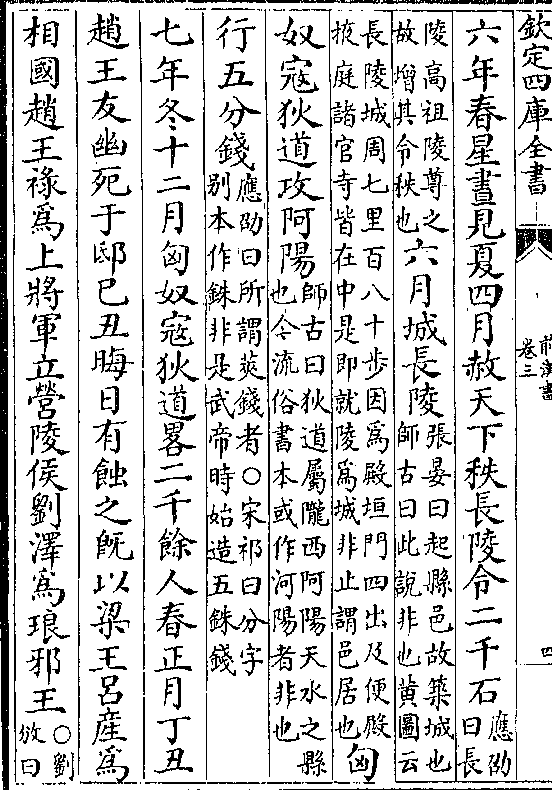 欽定四庫全書
前漢書
卷三
四
六年春星晝見夏四月赦天下秩長陵令二千石應劭曰長
陵高祖陵尊之故增其令秩也六月城長陵張晏曰起縣邑故築城也師古曰此說非也黃圖云
長陵城周七里百八十步因爲殿垣門四出及便殿掖庭諸官寺皆在中是即就陵爲城非止謂邑居也匈
奴寇狄道攻阿陽師古曰狄道屬隴西阿陽天水之縣也今流俗書本或作河陽者非也
行五分錢應劭曰所謂莢錢者○宋祁曰分字别本作銖非是武帝時始造五銖錢
七年冬十二月匈奴寇狄道畧二千餘人春正月丁丑
趙王友幽死于邸已丑晦日有蝕之既以梁王吕產爲
相國趙王祿爲上將軍立營陵侯劉澤爲琅邪王○劉攽曰